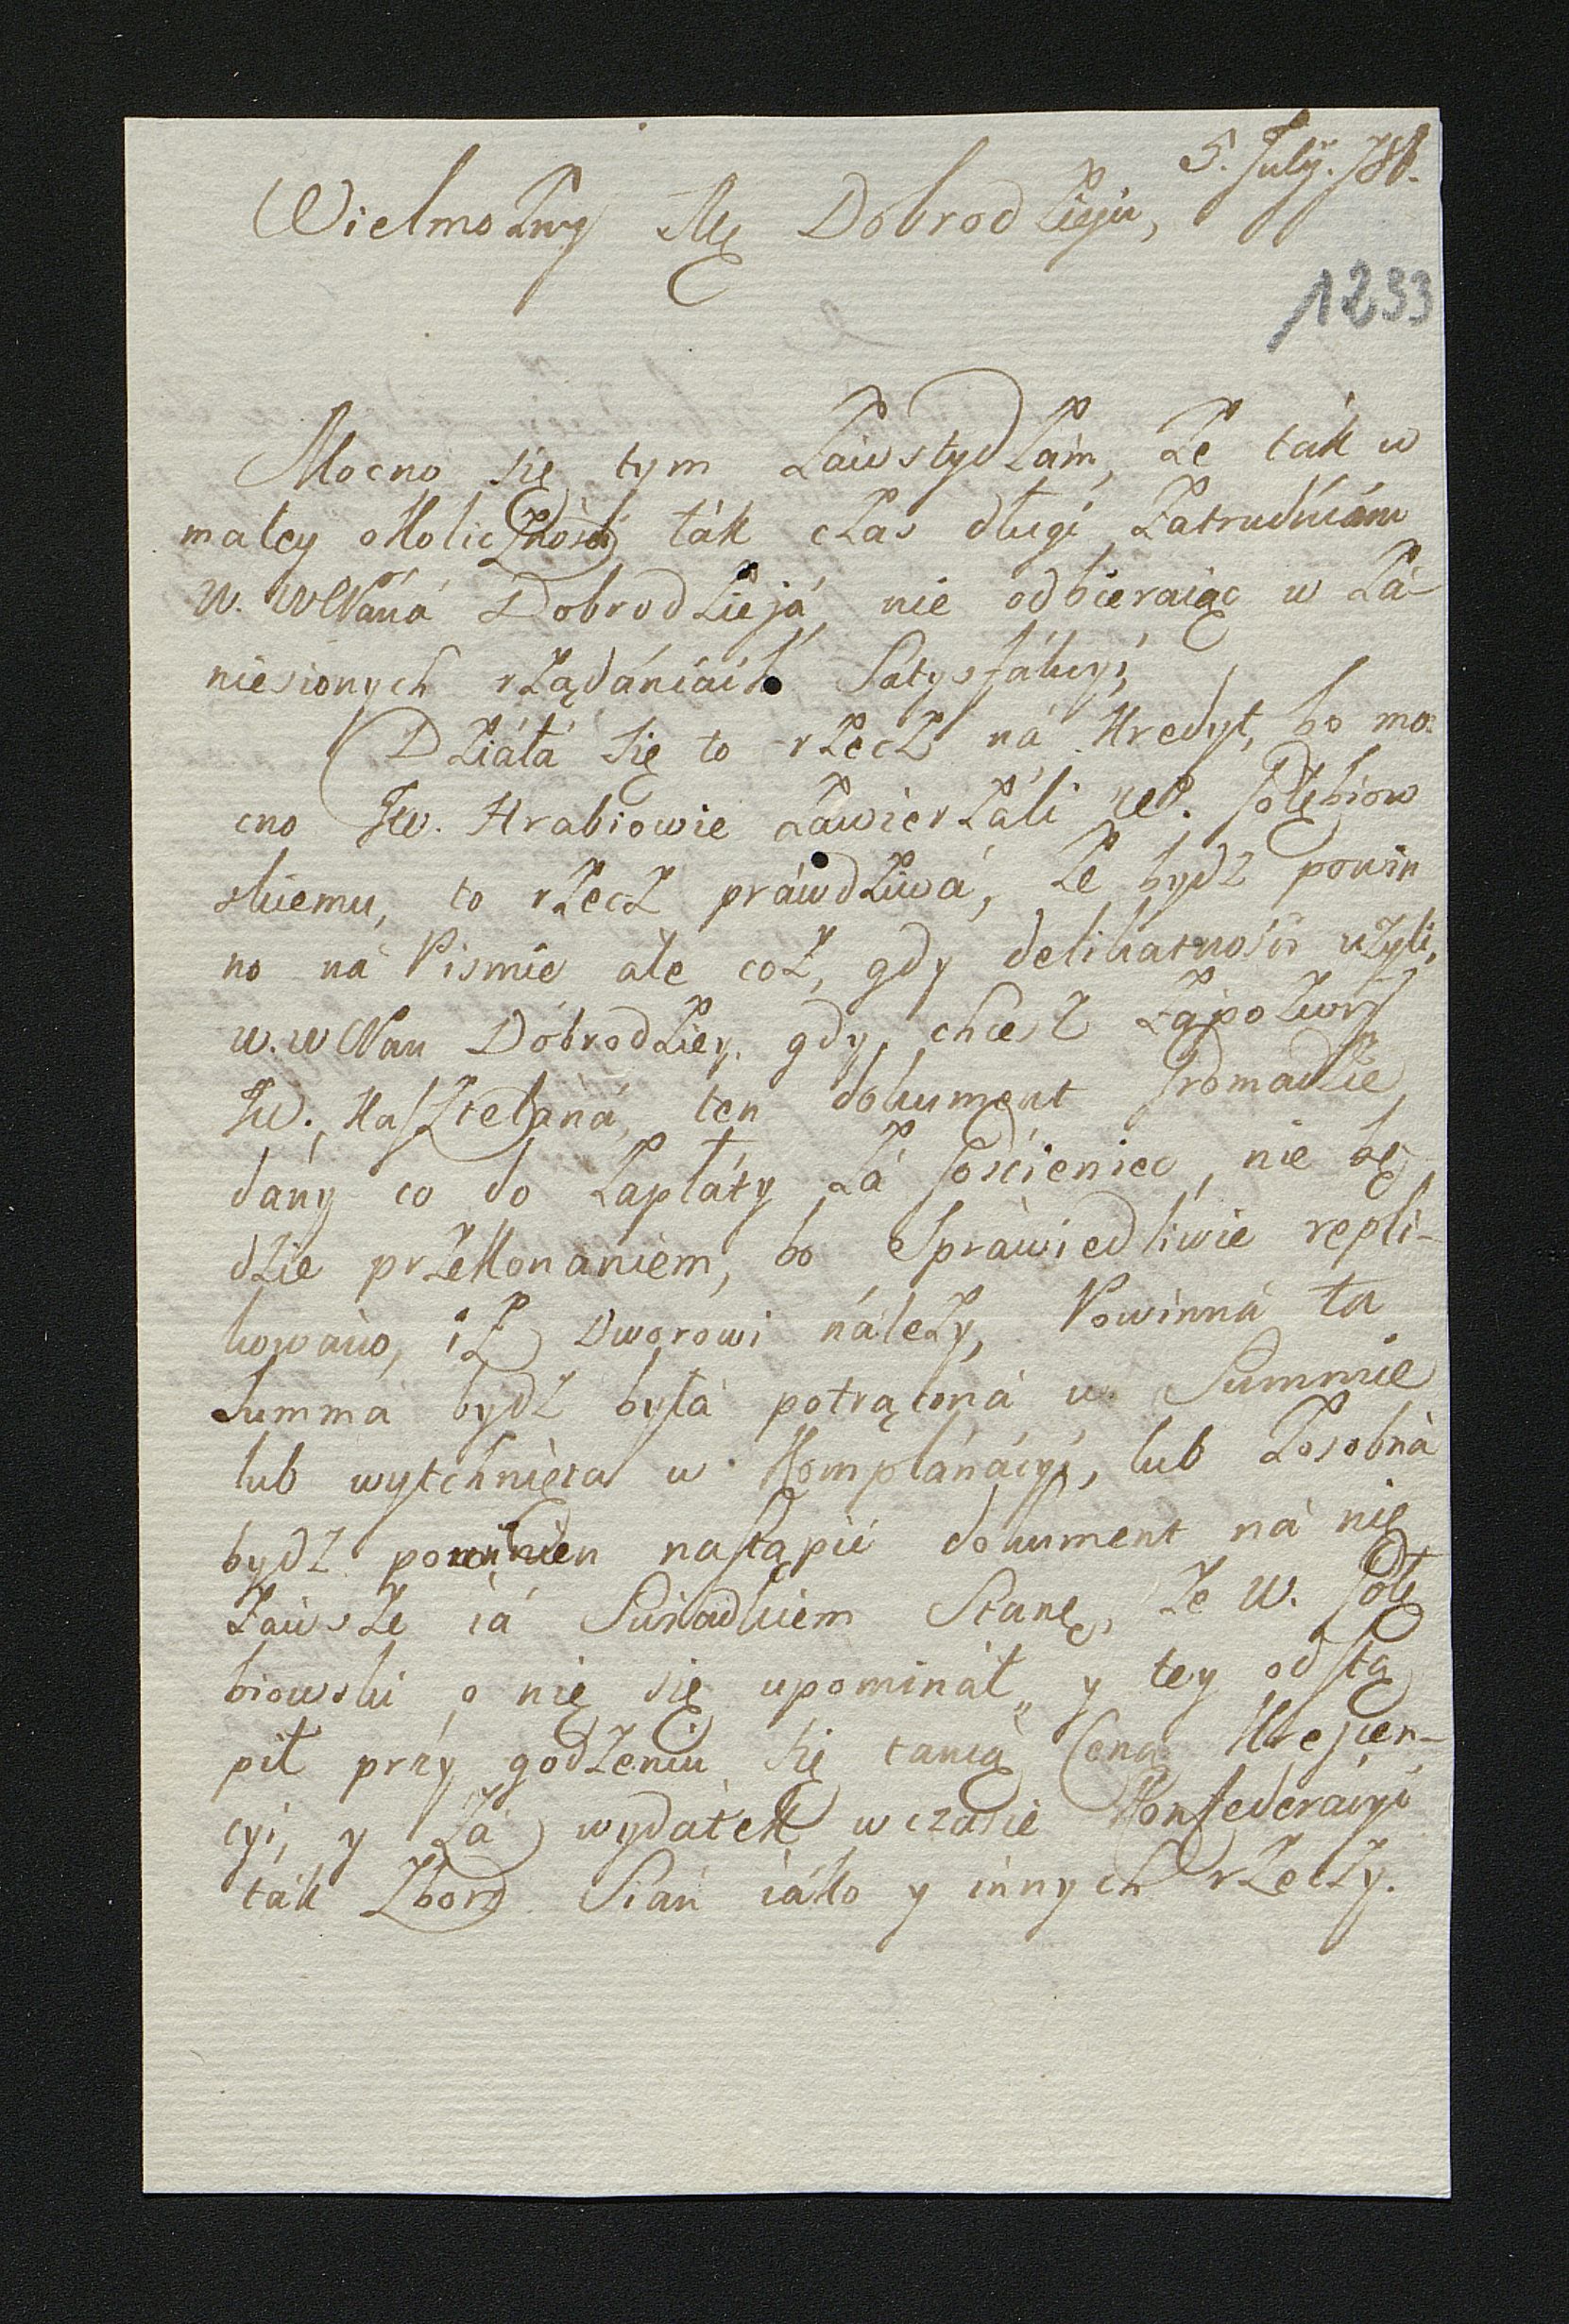 5. July. 786.
Wielmożny Mę Dobrodzieju,
1293
Mocno się tym zawstydzám, że ták w
małey okoliczności ták czas długi zatrudniám
W. WMPáná Dobrodziejá, nie odbieraiąc w zá-
niesionych rządániách Sátysfákcyi,
Działá się to rzecz ná Kredyt, bo mo-
cno JW. Hrabiowie záwierzáli W. Gołębiow
skiemu, to rzecz práwdziwá, że bydz powin
no ná Pismie ále coż, gdy delikatności użyli,
W. WMPan Dobrodziey, gdy chcesz
JW. Kasztelaná, ten dokument Gromadzie
dány co do zapłáty zá Gościeniec, nie bę
dzie przekonaniem, bo Spráwiedliwie repli-
kowano, iż Dworowi należy, Powinná ta
Summá bydz byłá potrąconá w Summie
lub wytchnięta w Komplánácyi, lub zosobná
bydz powinien nastąpić dokument ná nię
záwsze iá Swiadkiem Stanę, że W. Gołę
biowski o nię się upominał, y tey odstą
pił przy godzeniu się tanią Ceną Krescen-
cyi, y zá wydátek w czasie Konfederácyi
ták Zboż Sian iáko y innych rzeczy.